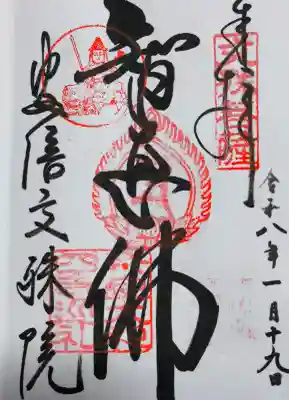 奉拝
令和八年一月十九日
智恵佛
安倍文殊院